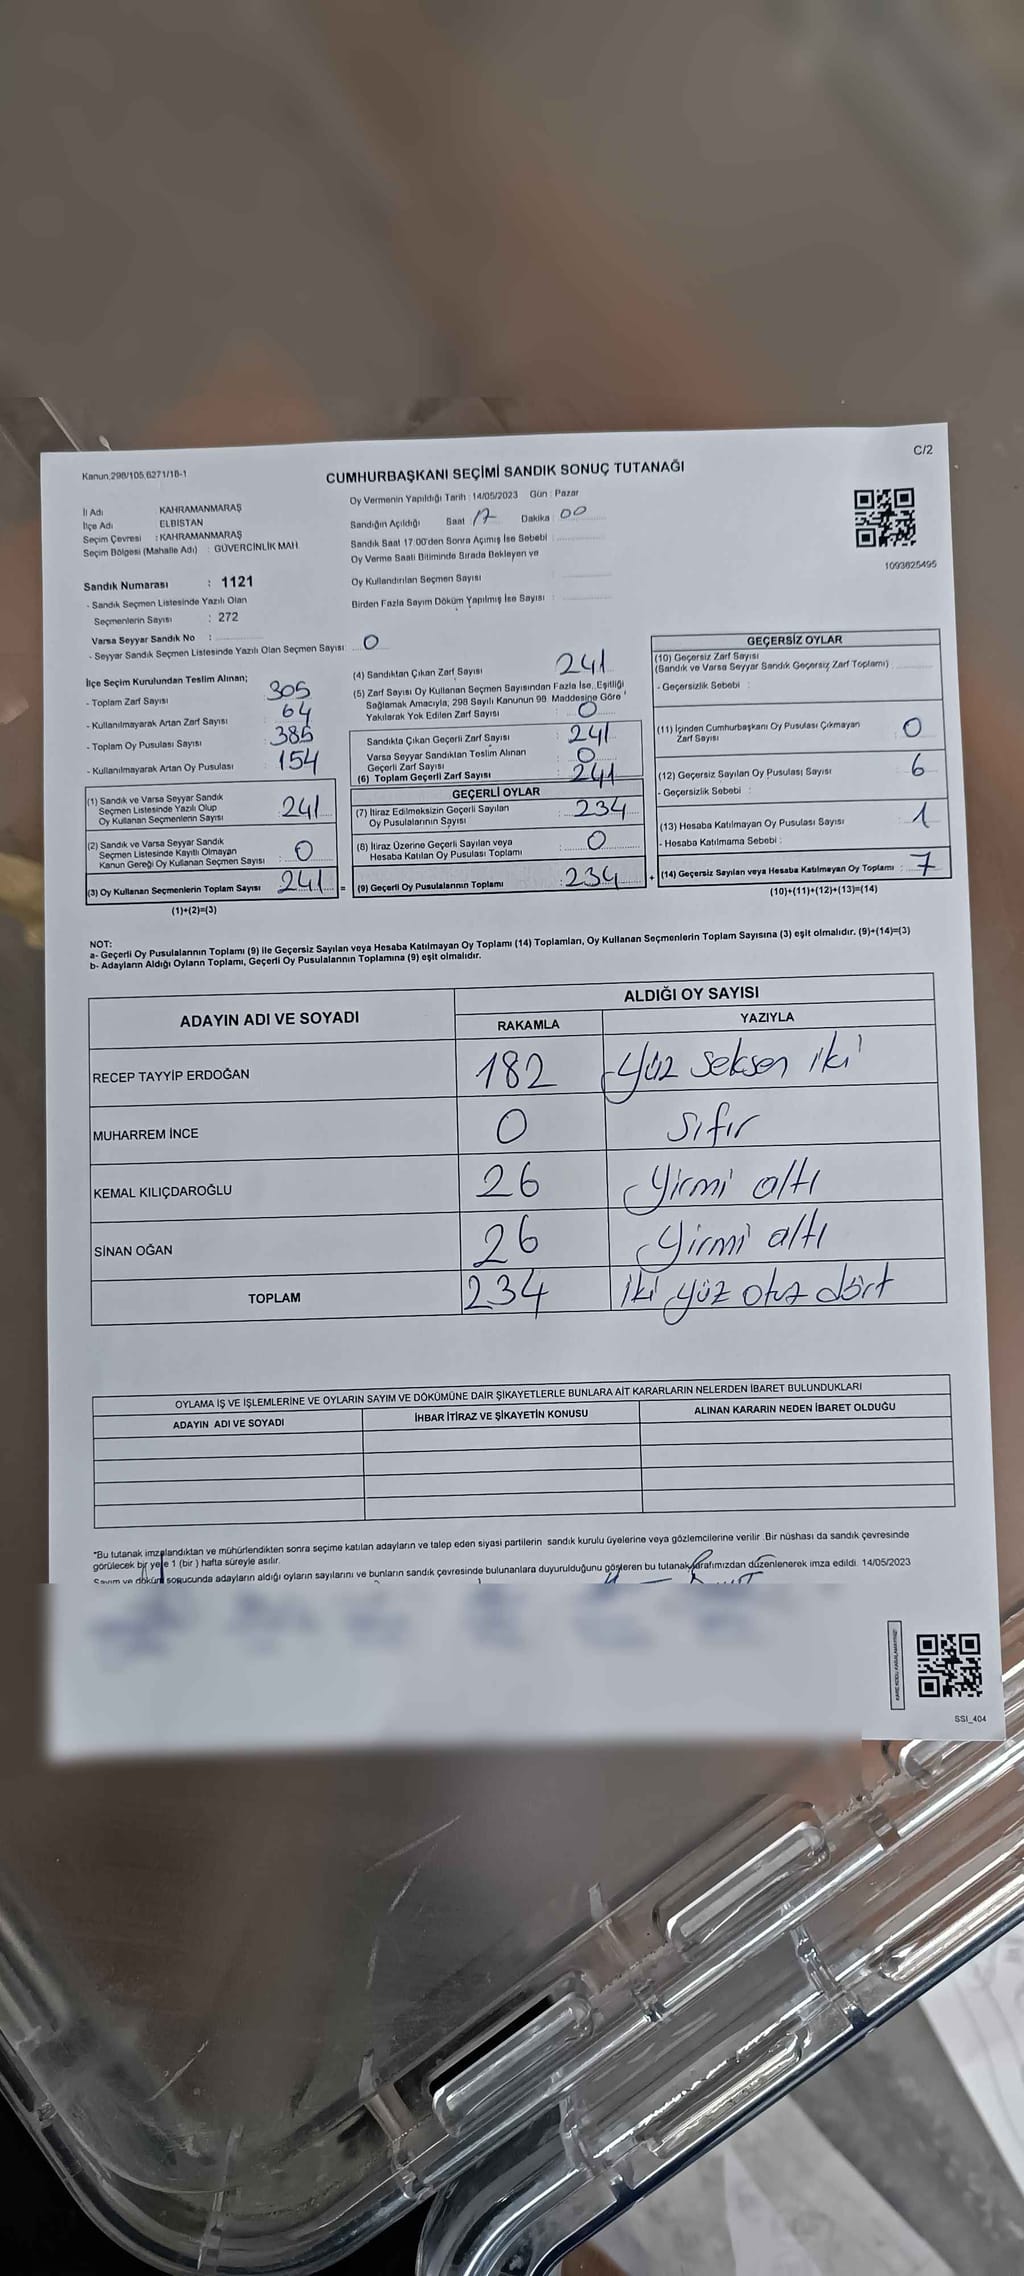 C/2
Kanun.298/105,6271/18-1
CUMHURBAŞKANI SEÇİMİ SANDIK SONUÇ TUTANAĞI
İl Adı KAHRAMANMARAŞ
İlçe Adı ELBİSTAN
Seçim Çevresi : KAHRAMANMARAŞ
Seçim Bölgesi (Mahalle Adı) : GÜVERCİNLİK MAH
Oy Vermenin Yapıldığı Tarih : 14/05/2023 Gün : Pazar
Sandığın Açıldığı Saat 17 Dakika 00
Sandık Saat 17:00'den Sonra Açımış İse Sebebi :
Oy Verme Saati Bitiminde Sırada Bekleyen ve
Oy Kullandırılan Seçmen Sayısı :
Birden Fazla Sayım Döküm Yapılmış İse Sayısı :
1093625495
Sandık Numarası : 1121
- Sandık Seçmen Listesinde Yazılı Olan
Seçmenlerin Sayısı : 272
Varsa Seyyar Sandık No :
- Seyyar Sandık Seçmen Listesinde Yazılı Olan Seçmen Sayısı: 0
İlçe Seçim Kurulundan Teslim Alınan;
- Toplam Zarf Sayısı : 305
- Kullanılmayarak Artan Zarf Sayısı : 64
- Toplam Oy Pusulası Sayısı : 385
- Kullanılmayarak Artan Oy Pusulası : 154
(1) Sandık ve Varsa Seyyar Sandık
Seçmen Listesinde Yazılı Olup
Oy Kullanan Seçmenlerin Sayısı : 241
(2) Sandık ve Varsa Seyyar Sandık
Seçmen Listesinde Kayıtlı Olmayan
Kanun Gereği Oy Kullanan Seçmen Sayısı : 0
(3) Oy Kullanan Seçmenlerin Toplam Sayısı : 241 =
(1)+(2)=(3)
(4) Sandıktan Çıkan Zarf Sayısı : 241
(5) Zarf Sayısı Oy Kullanan Seçmen Sayısından Fazla İse, Eşitliği
Sağlamak Amacıyla; 298 Sayılı Kanunun 98. Maddesine Göre
Yakılarak Yok Edilen Zarf Sayısı : 0
Sandıkta Çıkan Geçerli Zarf Sayısı : 241
Varsa Seyyar Sandıktan Teslim Alınan
Geçerli Zarf Sayısı : 0
(6) Toplam Geçerli Zarf Sayısı : 241
GEÇERLİ OYLAR
(7) İtiraz Edilmeksizin Geçerli Sayılan
Oy Pusulalarının Sayısı : 234
(8) İtiraz Üzerine Geçerli Sayılan veya
Hesaba Katılan Oy Pusulası Toplamı : 0
(9) Geçerli Oy Pusulalarının Toplamı : 234 +
GEÇERSİZ OYLAR
(10) Geçersiz Zarf Sayısı
(Sandık ve Varsa Seyyar Sandık Geçersiz Zarf Toplamı) :
- Geçersizlik Sebebi :
(11) İçinden Cumhurbaşkanı Oy Pusulası Çıkmayan
Zarf Sayısı : 0
(12) Geçersiz Sayılan Oy Pusulası Sayısı : 6
- Geçersizlik Sebebi :
(13) Hesaba Katılmayan Oy Pusulası Sayısı : 1
- Hesaba Katılmama Sebebi :
(14) Geçersiz Sayılan veya Hesaba Katılmayan Oy Toplamı : 7
(10)+(11)+(12)+(13)=(14)
NOT:
a- Geçerli Oy Pusulalarının Toplamı (9) ile Geçersiz Sayılan veya Hesaba Katılmayan Oy Toplamı (14) Toplamları, Oy Kullanan Seçmenlerin Toplam Sayısına (3) eşit olmalıdır. (9)+(14)=(3)
b- Adayların Aldığı Oyların Toplamı, Geçerli Oy Pusulalarının Toplamına (9) eşit olmalıdır.
ADAYIN ADI VE SOYADI ALDIĞI OY SAYISI
RAKAMLA YAZIYLA
RECEP TAYYİP ERDOĞAN 182 yüz seksen iki
MUHARREM İNCE 0 sıfır
KEMAL KILIÇDAROĞLU 26 yirmi altı
SİNAN OĞAN 26 yirmi altı
TOPLAM 234 iki yüz otuz dört
OYLAMA İŞ VE İŞLEMLERİNE VE OYLARIN SAYIM VE DÖKÜMÜNE DAİR ŞİKAYETLERLE BUNLARA AİT KARARLARIN NELERDEN İBARET BULUNDUKLARI
ADAYIN ADI VE SOYADI İHBAR İTİRAZ VE ŞİKAYETİN KONUSU ALINAN KARARIN NEDEN İBARET OLDUĞU
"Bu tutanak imzalandıktan ve mühürlendikten sonra seçime katılan adayların ve talep eden siyasi partilerin sandık kurulu üyelerine veya gözlemcilerine verilir .Bir nüshası da sandık çevresinde
görülecek bir yere 1 (bir ) hafta süreyle asılır.
Sayım ve döküm sonucunda adayların aldığı oyların sayılarını ve bunların sandık çevresinde bulunanlara duyurulduğunu gösteren bu tutanak tarafımızdan düzenlenerek imza edildi. 14/05/2023
SSI_404